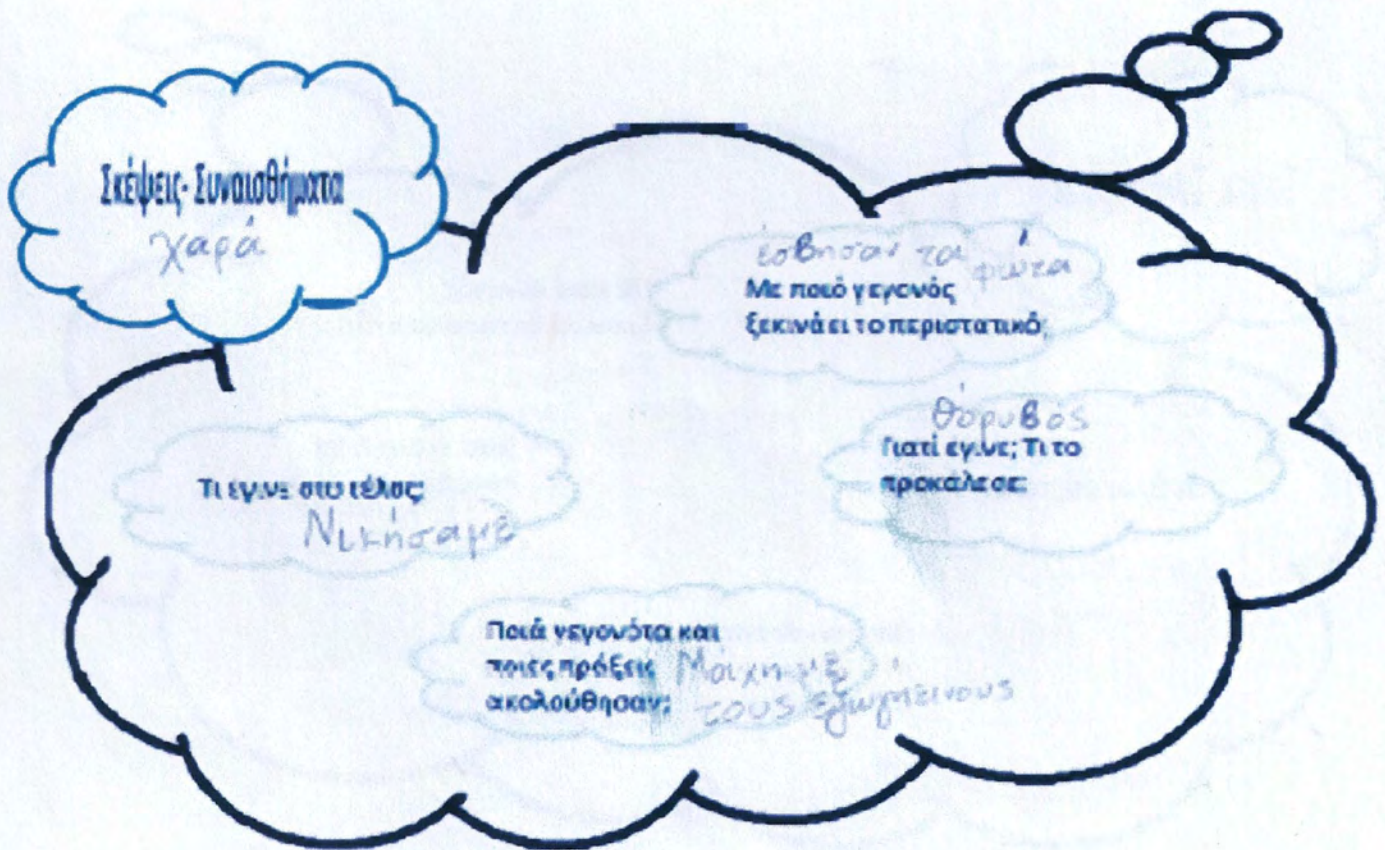 Σκέψεις- Συναισθήματα
χαρά
έσβησαν τα φώτα
Με ποιό γεγονός
ξεκινάει το περιστατικό;
θόρυβός
Γιατί έγινε; Τι το
προκάλεσε;
Τι έγινε στο τέλος;
Νικήσαμε
Ποιά γεγονότα και
ποιές πράξεις Μαχη με
ακολούθησαν; τους εξωγηεινους